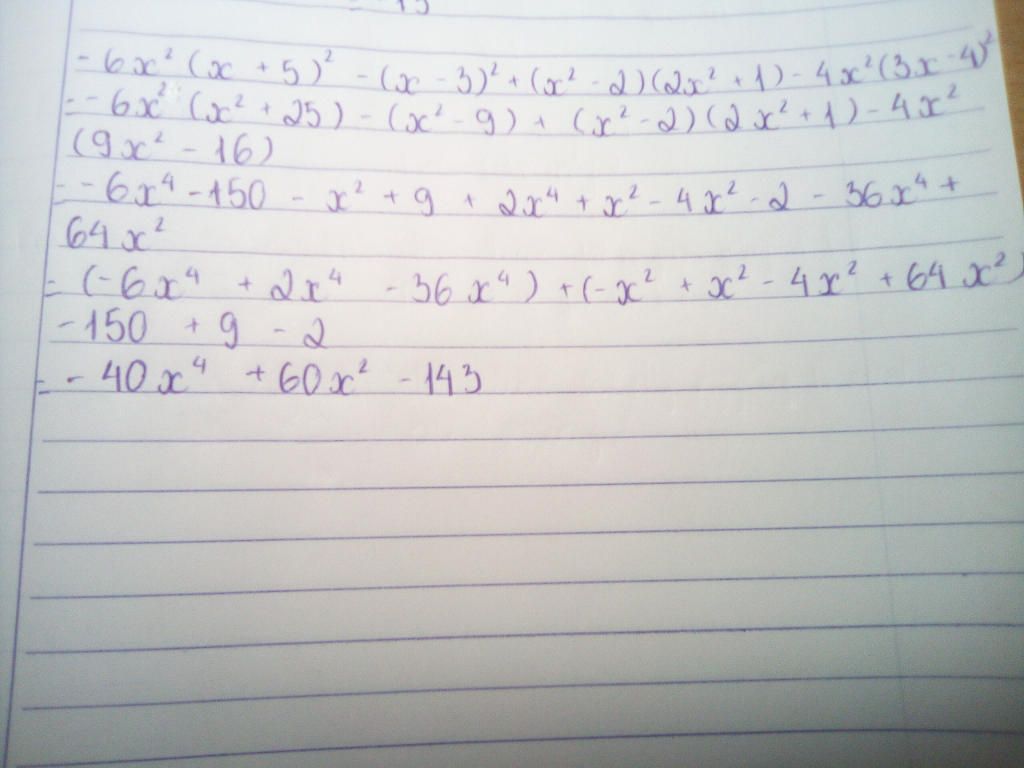 - 6x² (x + 5)² - (x - 3)² + (x² - 2)(2x² + 1) - 4x²(3x - 4)²
= - 6x² (x² + 25) - (x² - 9) + (x² - 2)(2x² + 1) - 4x²
(9x² - 16)
= - 6x⁴ - 150 - x² + 9 + 2x⁴ + x² - 4x² - 2 - 36x⁴ +
64x²
= (- 6x⁴ + 2x⁴ - 36x⁴) + (- x² + x² - 4x² + 64x²)
- 150 + 9 - 2
= - 40x⁴ + 60x² - 143